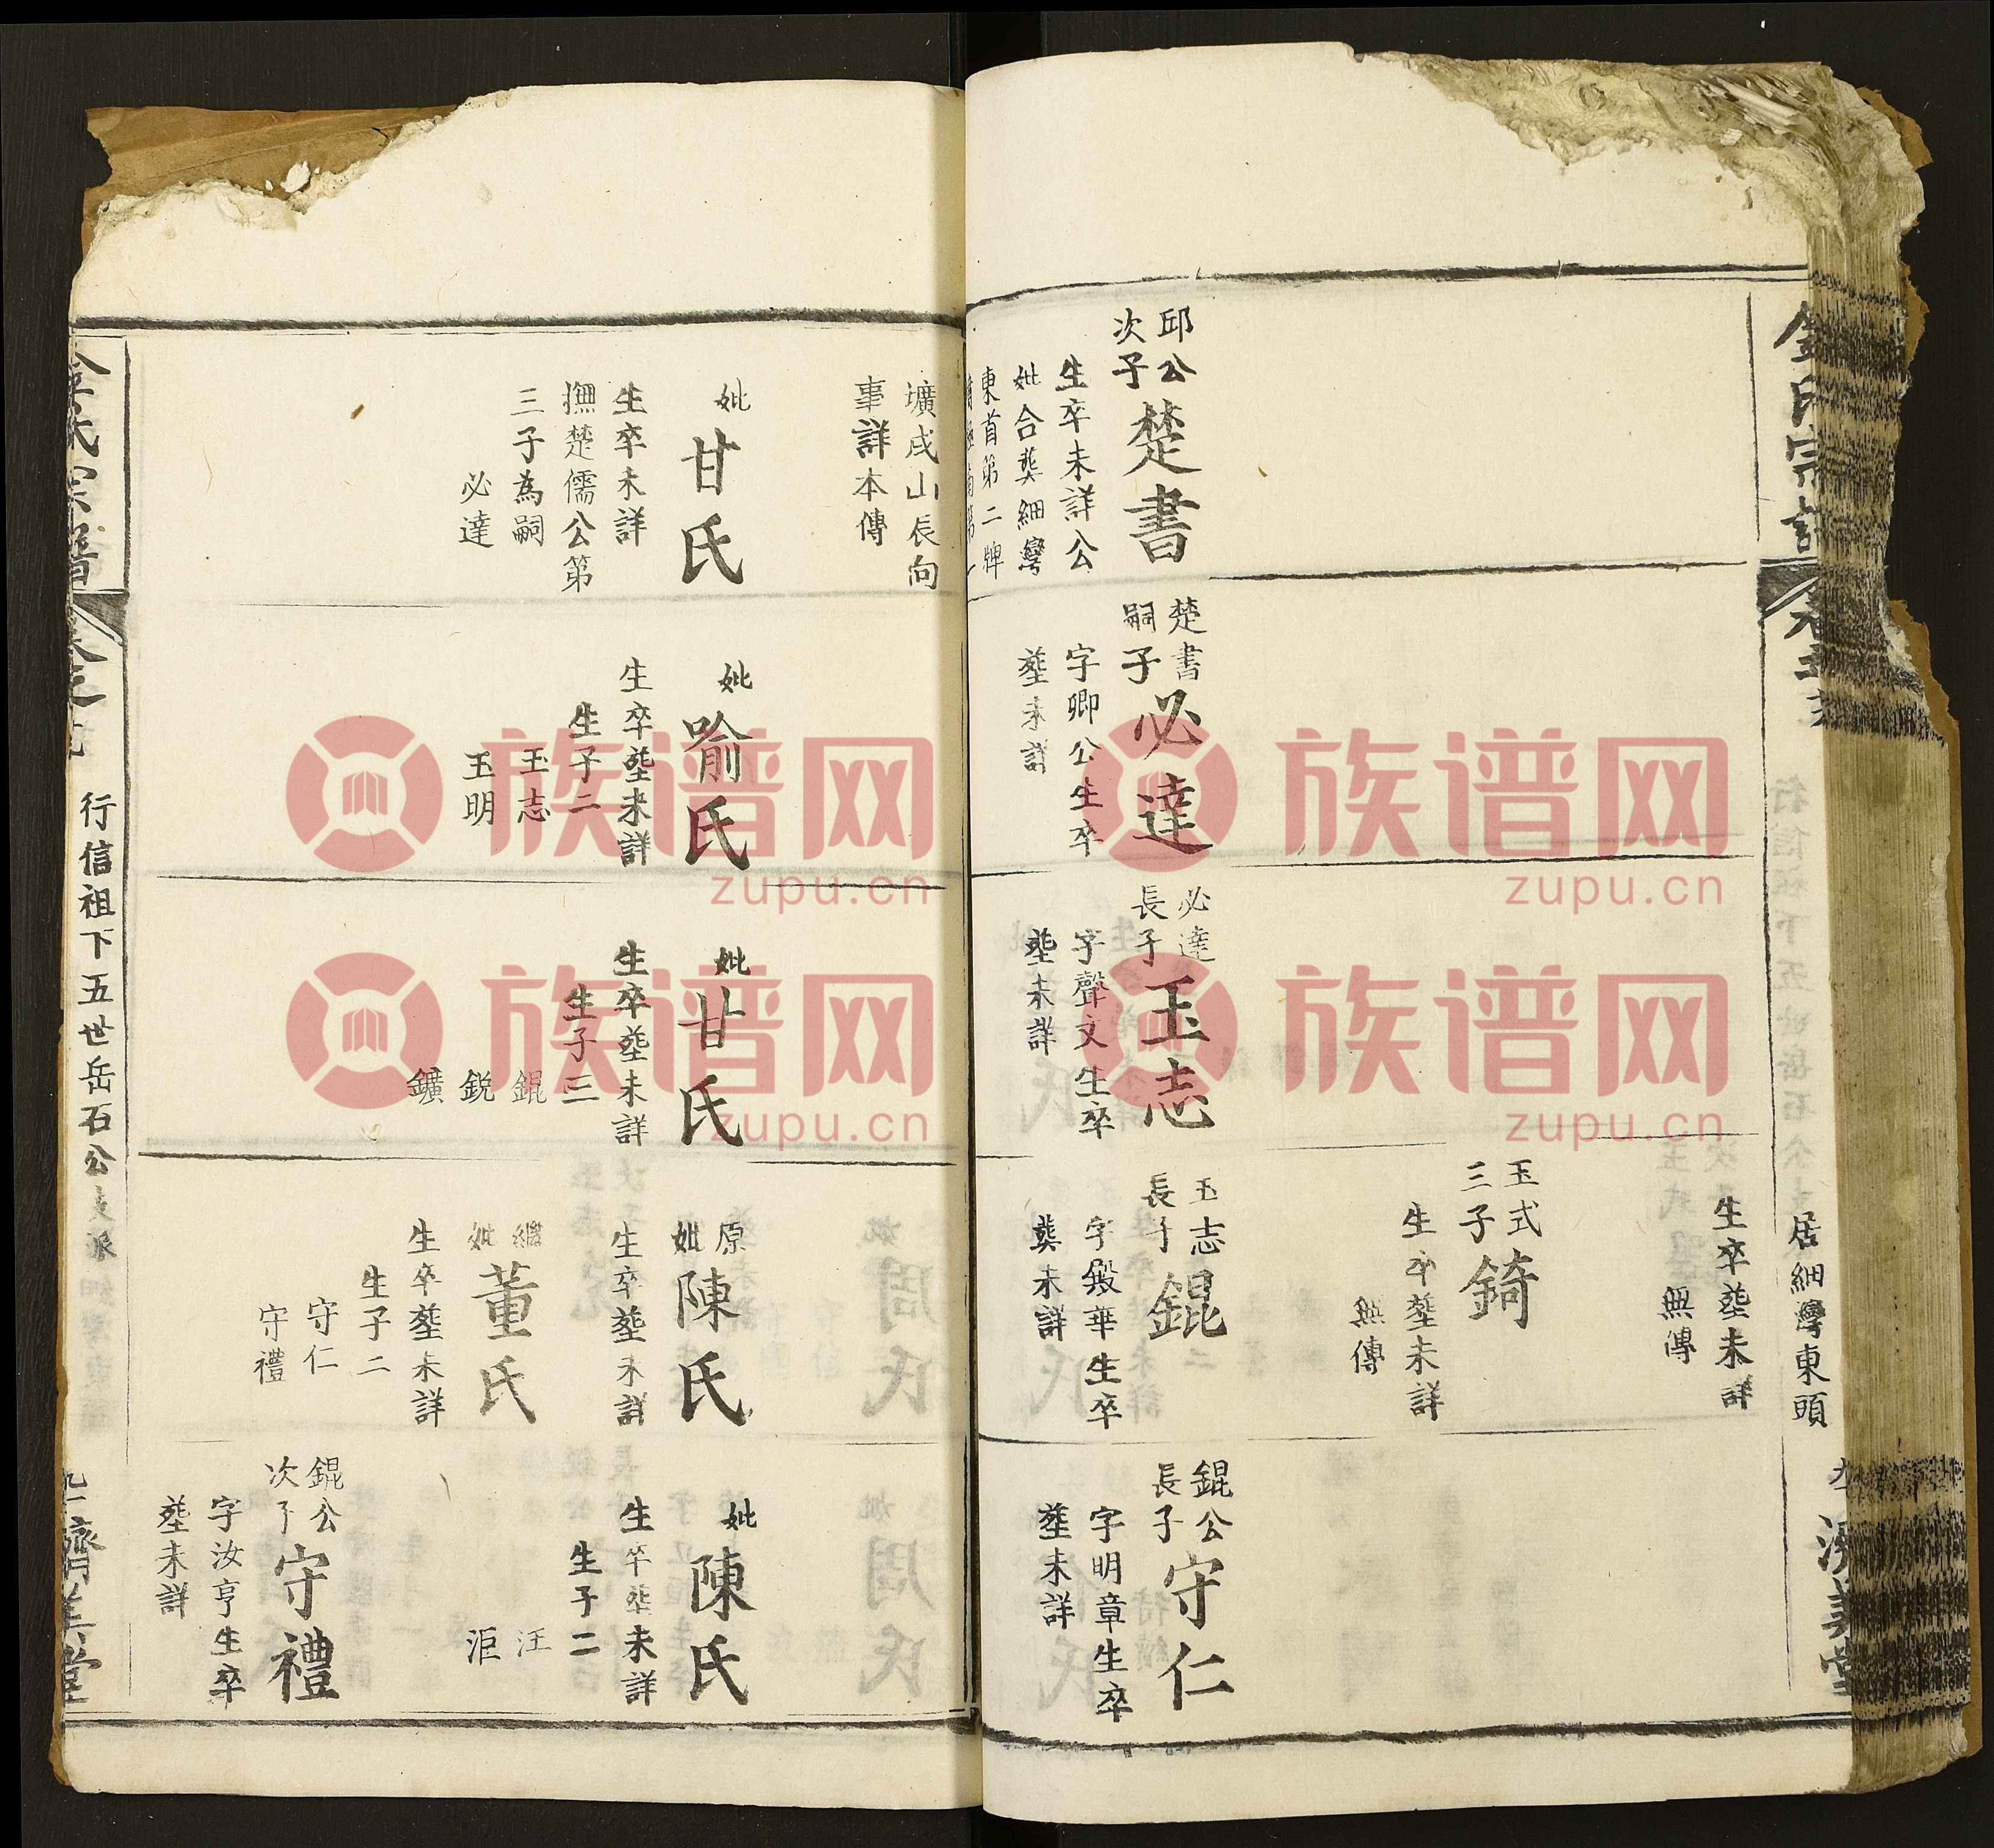 氏宗譜
居細灣東頭
美堂
邱公
次子
楚書
生卒未詳公
妣合𦵏細灣
東首第二牌
楚書
嗣子
必達
字卿公生卒
塟未詳
必達
長子
玉志
字聲文生卒
塟未詳
生卒塟未詳
無傳
玉式
三子
錡
生卒塟未詳
無傳
玉志
長子
錕
字殿華生卒
𦵏未詳
錕公
長子
守仁
字明章生卒
塟未詳
壙戌山辰向
事詳本傳
妣
甘氏
生卒未詳
撫楚儒公第
三子為嗣
必達
妣
喻氏
生卒塟未詳
生子二
玉志
玉明
妣
甘氏
生卒塟未詳
生子三
錕
銳
鑛
原
妣
陳氏
生卒塟未詳
繼
妣
董氏
生卒塟未詳
生子二
守仁
守禮
妣
陳氏
生卒塟未詳
生子二
汪
洰
錕公
次子
守禮
字汝亨生卒
塟未詳
氏宗譜
卷之
行信祖下五世岳石公支派
濟美堂
族谱网
zupu.cn
族谱网
zupu.cn
族谱网
zupu.cn
族谱网
zupu.cn